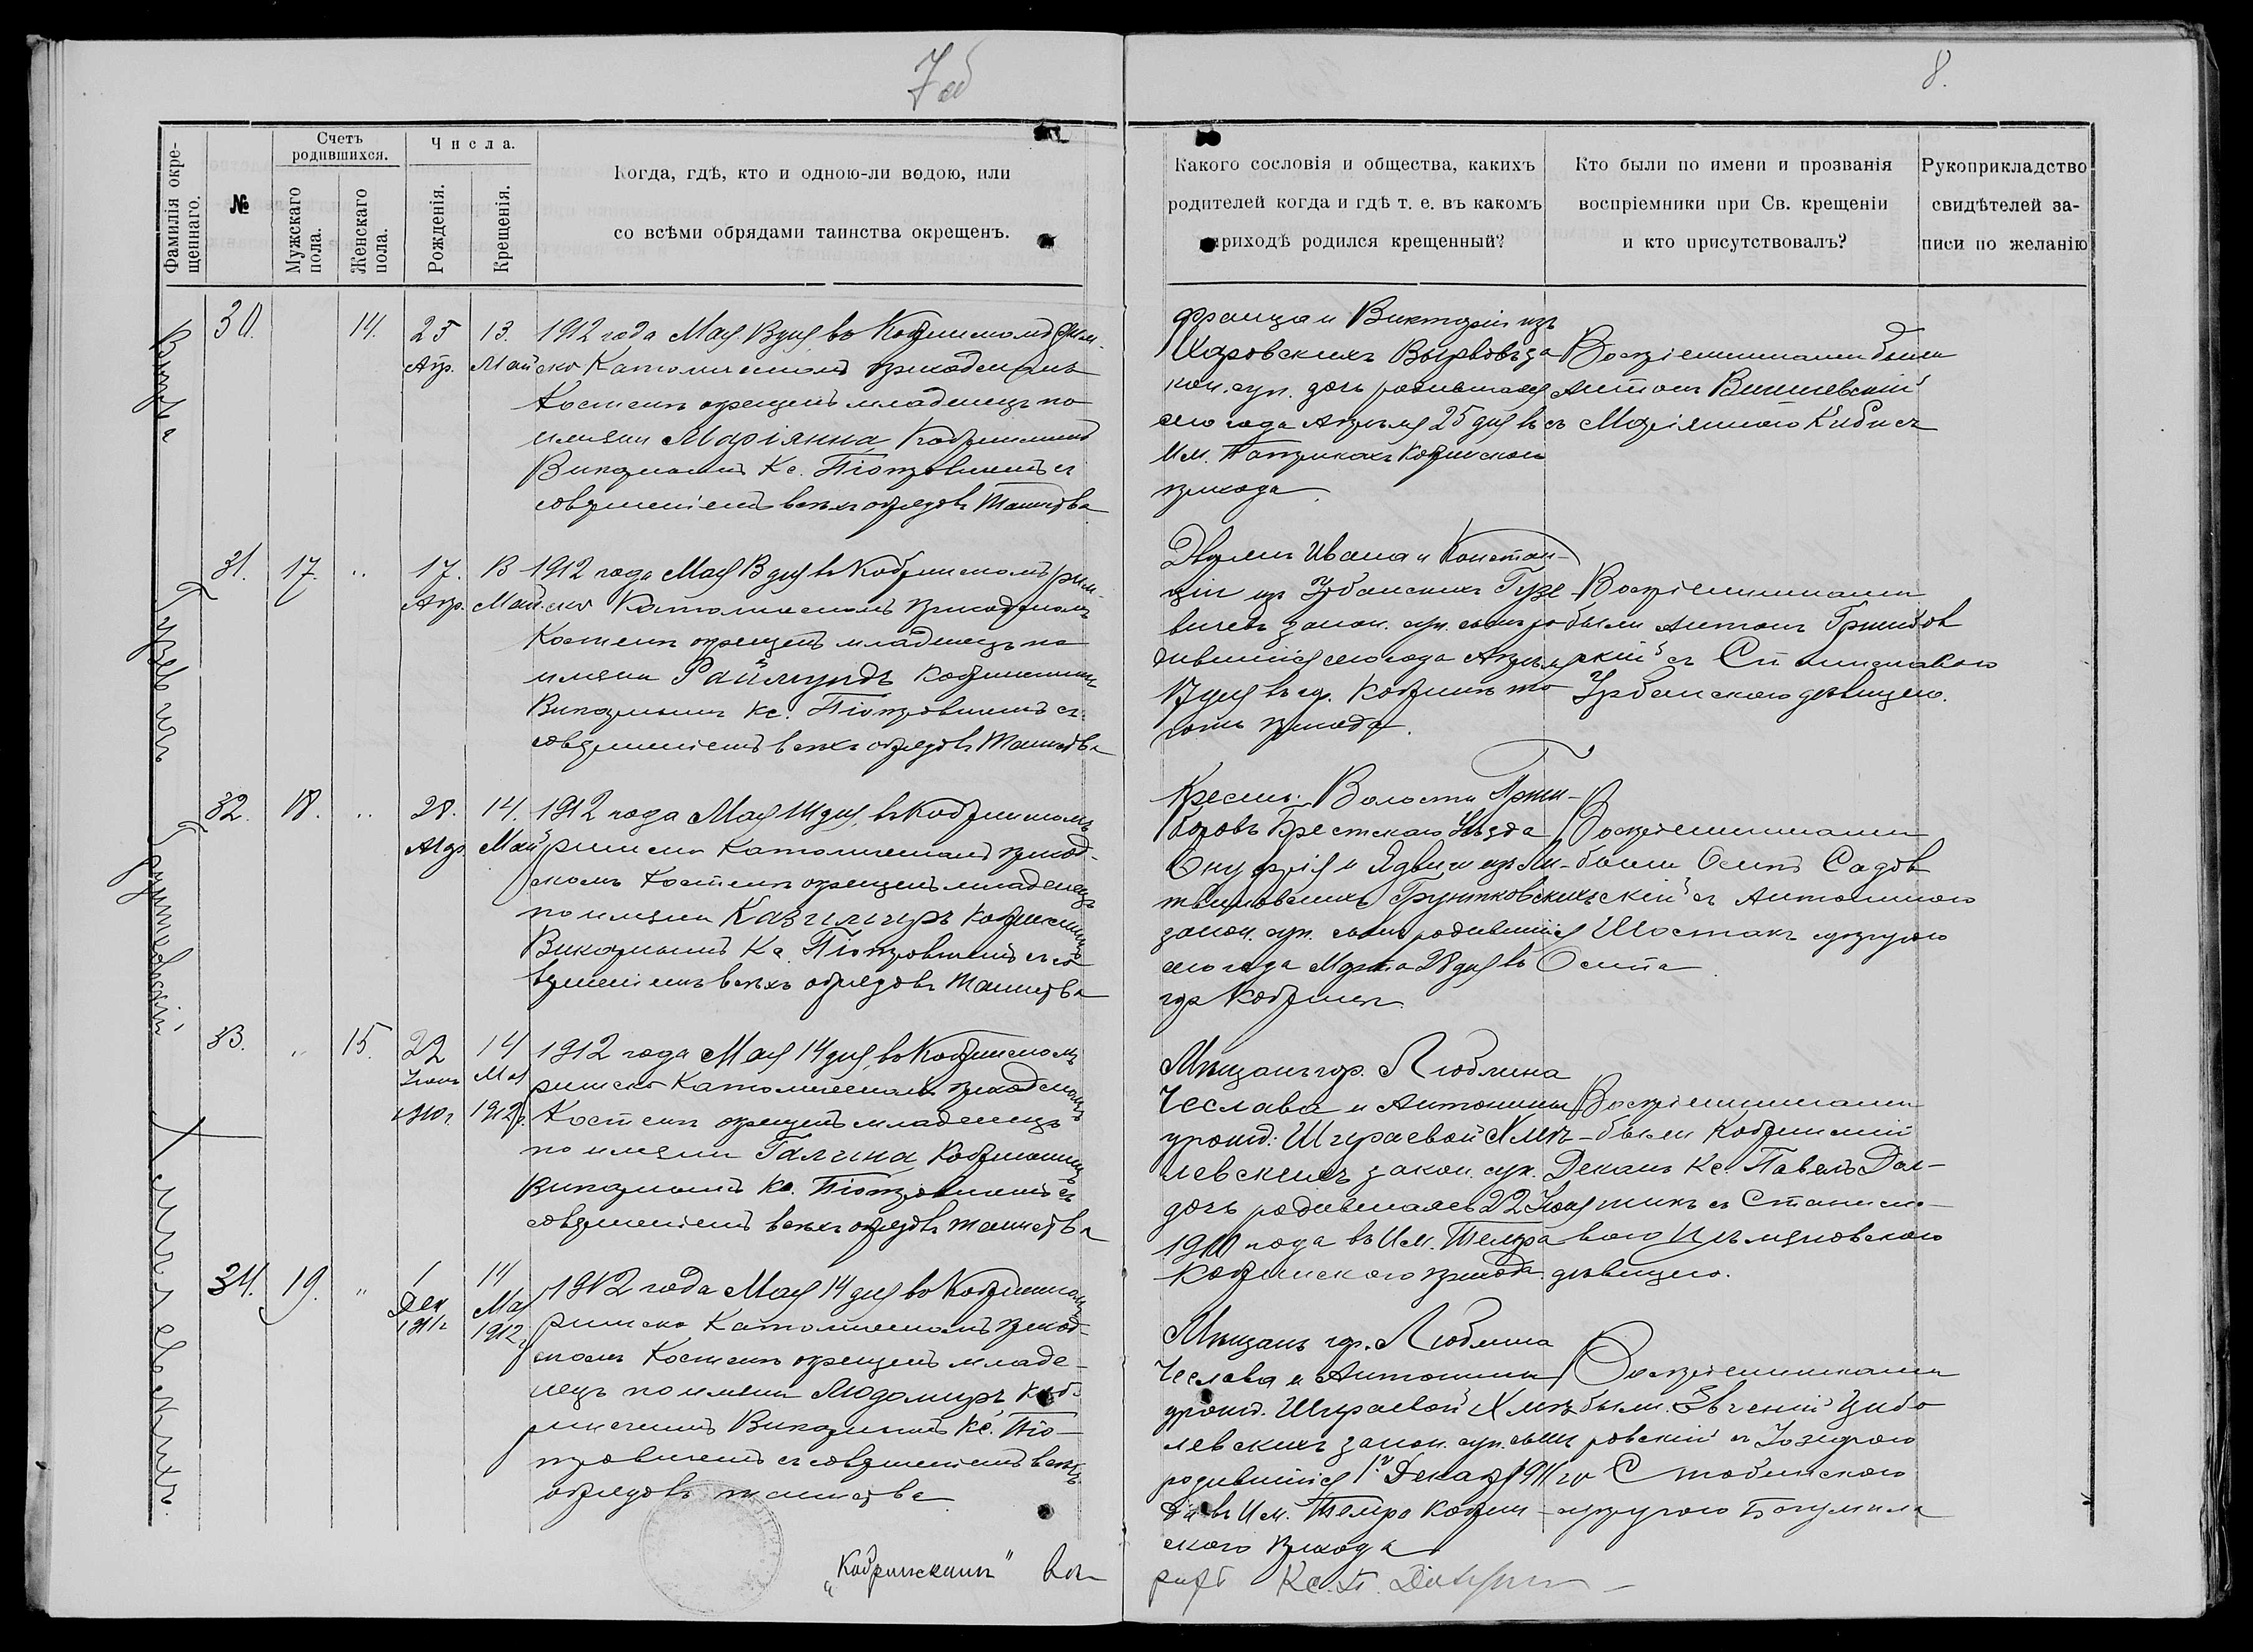 7об
8.
Фамилія окрещеннаго.
№
Счетъ родившихся.
Мужскаго пола.
Женскаго пола.
Числа.
Рожденія.
Крещенія.
Когда, гдѣ, кто и одною-ли водою, или
со всѣми обрядами таинства окрещенъ.
Какого сословія и общества, какихъ
родителей когда и гдѣ т. е. въ какомъ
приходѣ родился крещенный?
Кто были по имени и прозванія
воспріемники при Св. крещеніи
и кто присутствовалъ?
Рукоприкладство
свидѣтелей за-
писи по желанію
30.
14.
25
Апр.
13.
Май
1912 года Мая 13 дня въ Кобринскомъ Рим-
ско Католическомъ приходскомъ
Костелѣ окрещенъ младенецъ по
имени Маріянна Кобринскимъ
Викарнымъ Кс. Піотровичемъ съ
совершеніемъ всѣхъ обрядовъ Таинства
Франца и Викторіи изъ
сего года Апрѣля 25 дня въ
Им. Патрикахъ Кобринскаго
прихода.
Воспріемниками были
Антонъ Вишневскій
съ Маріянною Кибисъ
Гузевичъ
31.
17.
"
17.
Апр.
13
Май
1912 года Мая 13 дня въ Кобринскомъ рим-
ско Католическомъ приходскомъ
Костелѣ окрещенъ младенецъ по
имени Раймундъ Кобринскимъ
Викарнымъ Кс. Піотровичемъ съ
совершеніемъ всѣхъ обрядовъ Таинства
Дворянъ Ивана и Констан-
ціи из Урбанскихъ Гузе-
вичевъ закон. суп. сынъ ро-
дившійся сего года Апрѣля
17 дня въ гор. Кобринѣ то-
гожъ прихода.
Воспріемниками
были Антонъ
съ Станиславою
Урбанскою дѣвицею.
Грунтковскій
32.
18.
"
28.
Апр.
14.
Май
1912 года Мая 14 дня, въ Кобринскомъ
римско Католическомъ приход-
скомъ Костелѣ окрещенъ младенецъ
по имени Казимиръ Кобринскимъ
Викарнымъ Кс. Піотровичемъ съ со-
вершеніемъ всѣхъ обрядовъ Таинства
Крестьян. Волости
Брестскаго Уѣзда
Онуфрія и Ядвиги изъ Ли-
твиновичъ Грунтковскихъ
закон. суп. сынъ родившійся
сего года Марта 28 дня въ
гор Кобринѣ.
Воспріемниками
были Осипъ Садов-
скій съ Антониною
Шостакъ супругою
Осипа.
Хмѣлевскихъ
33.
"
15.
22
Іюня
1910 г.
14
Мая
1912 г.
1912 года Мая 14 дня, въ Кобринскомъ
римско Католическомъ приходскомъ
Костелѣ окрещенъ младенецъ
по имени Галина Кобринскимъ
Викарнымъ Кс. Піотровичемъ съ
совершеніемъ всѣхъ обрядовъ таинства
Мѣщанъ гор. Люблина
Чеслава и Антонины
урожд. Шураевой Хмѣ-
левскихъ закон. суп.
дочь родившаяся 22 Іюня
1910 года въ Им. Темра
Кобринскаго прихода.
Воспріемниками
были Кобринскій
Деканъ Кс. Павелъ
съ Станисла-
вою
дѣвицею.
34.
19.
"
1
Дек
1911 г
14
Мая
1912 г
1912 года Мая 14 дня въ Кобринскомъ
римско Католическомъ приход-
скомъ Костелѣ окрещенъ младе-
нецъ по имени Людомиръ, Коб-
ринскимъ Викарнымъ Кс. Піо-
тровичемъ съ совершеніемъ всѣхъ
обрядовъ таинства
Мѣщанъ гор. Люблина
Чеслава и Антонины
урожд. Шураевой Хмѣ-
левскихъ закон. суп. сынъ
родившійся 1го Декабря 1911 го-
да въ Им. Темра Кобрин-
скаго прихода
Воспріемниками
были Евгеній Цибо-
ровскій съ Іозефою
супругою Богумила
"Кобринскимъ"
Кс. П.